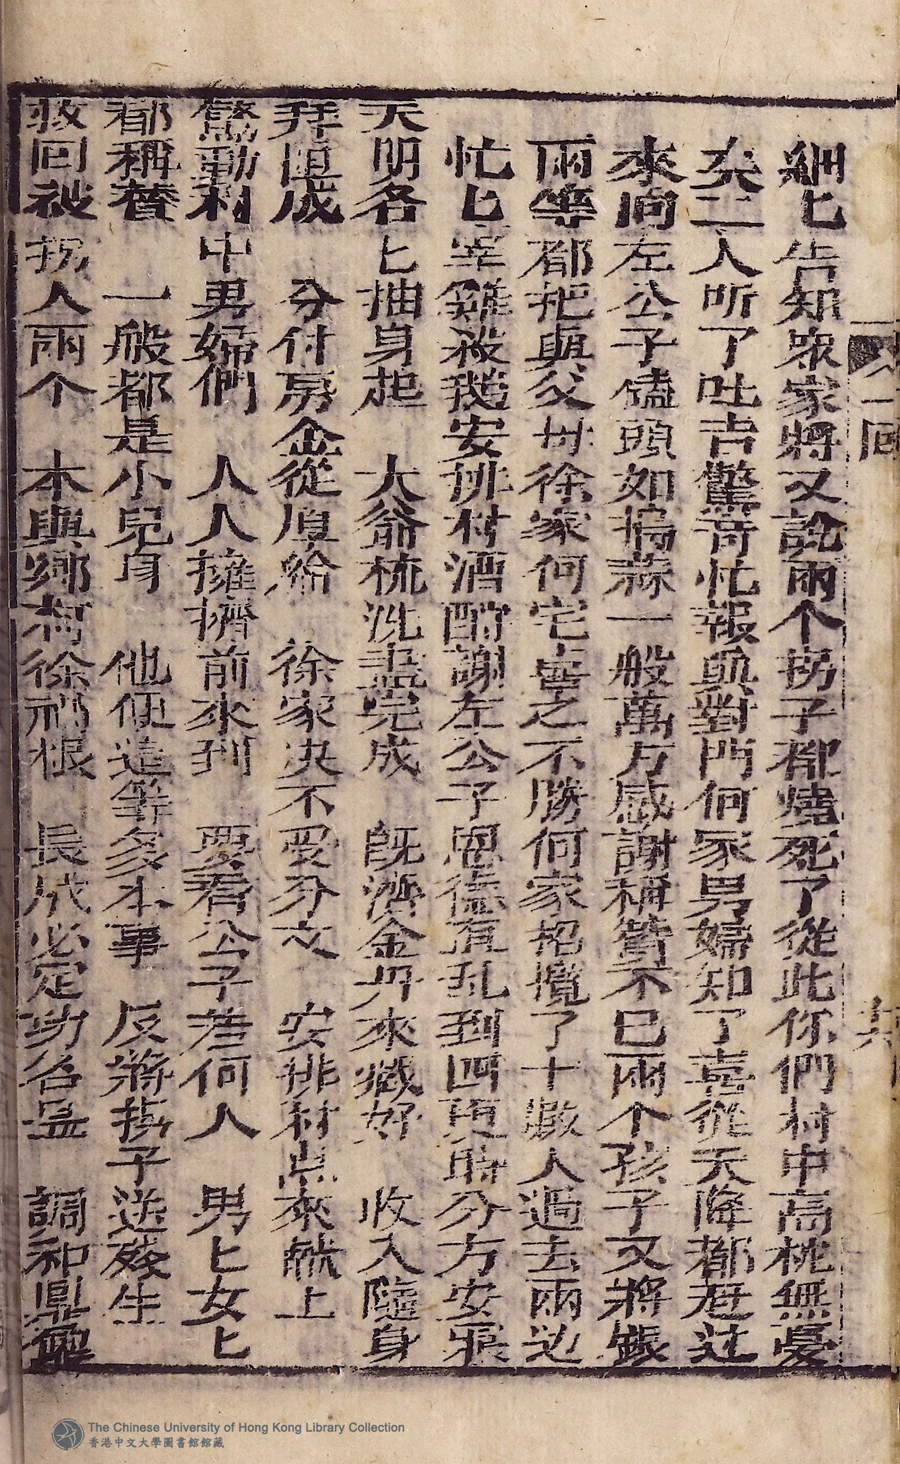 細匕告知衆家將又說兩个拐子都燒死了從此你們村中高枕無憂
夫二人听了吐舌驚奇忙報與對門何家男婦知了喜從天降都赶过
來向左公子磕頭如搗蒜一般萬万感謝稱贊不已兩个孩子又將銀
兩等都把與父母徐家何宅喜之不勝何家招攬了十数人過去兩边
忙匕宰雞殺鵝安排村酒酧謝左公子恩德直乱到四更時分方安歇
天明各匕抽身起　大爺梳洗盡完成　既濟金丹來藏好　收入隨身
拜匣成　分付房金從厚給　徐家决不受分文　安排村点來餞上
驚動利中男婦們　人人擁擠前來到　要看公子若何人　男匕女匕
都稱替　一般都是小兒身　他便這等多本事　反將拐子送殘生
救回被拐人兩个　本與鄉村徐禍根　長成必定功名显　調和鼎鼐
The Chinese University of Hong Kong Library Collection
香港中文大學圖書館館藏